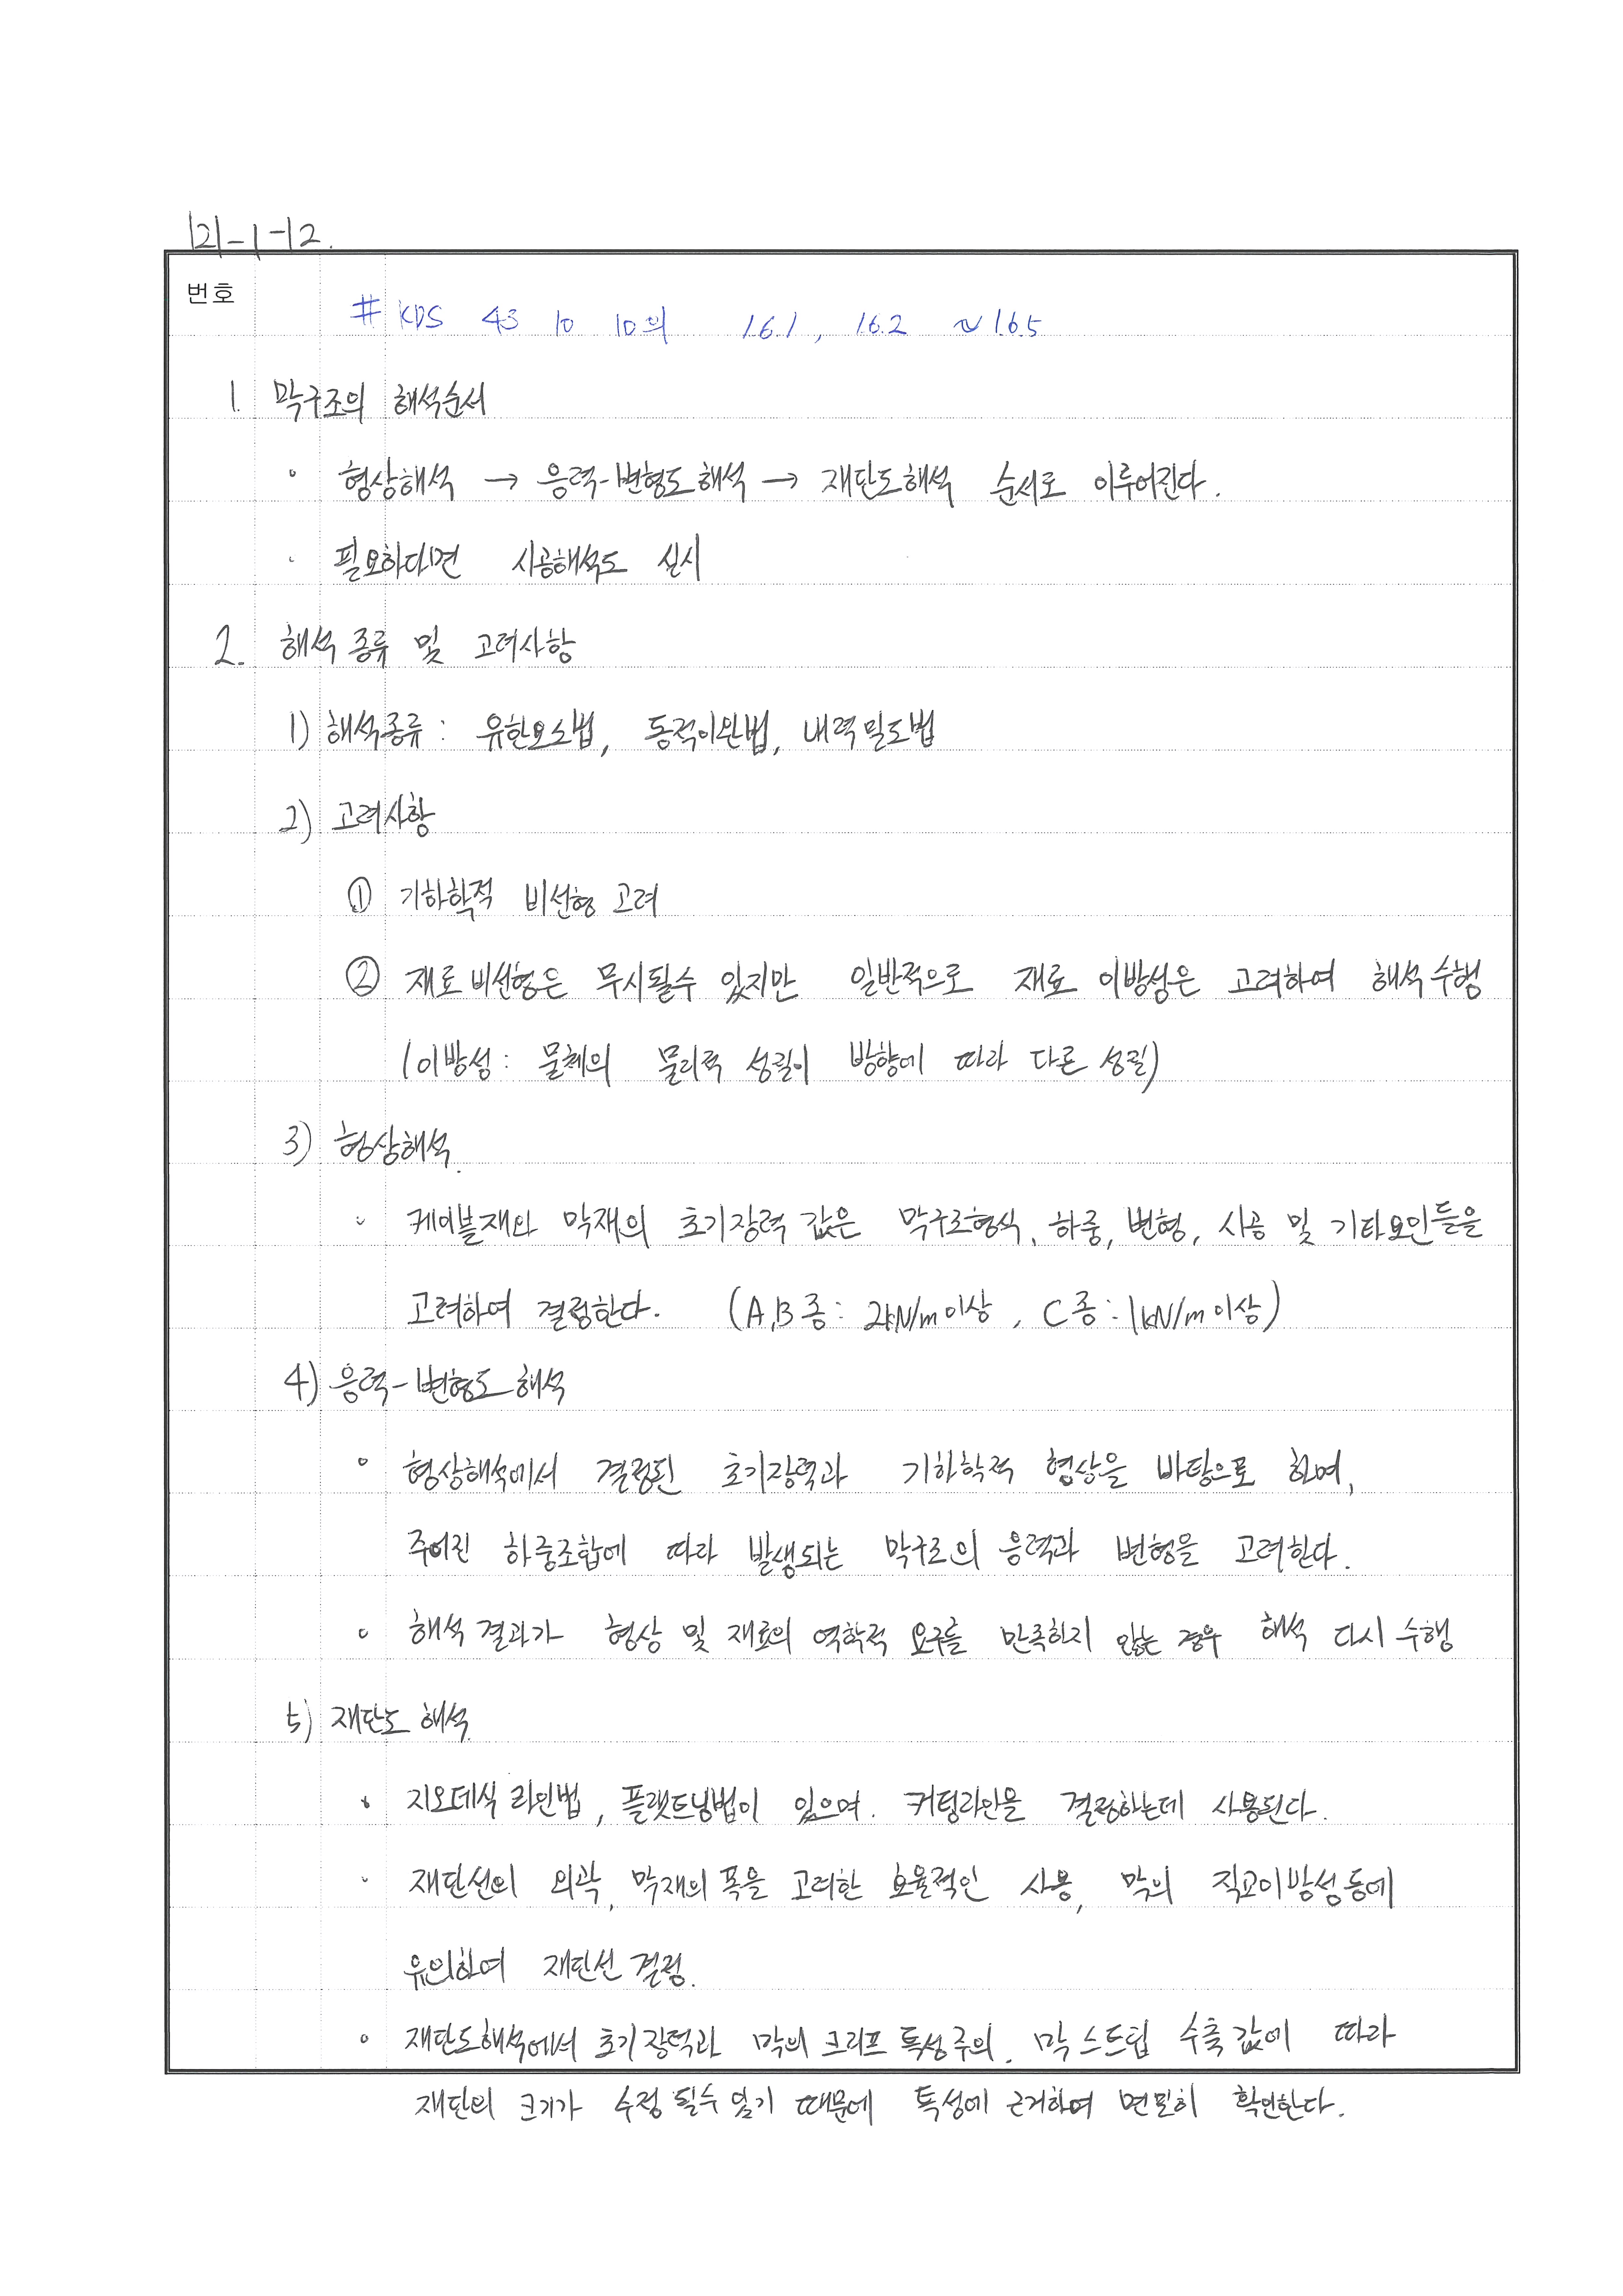 121-1-12.
번호
# KDS 43 10 10의 1.6.1, 1.6.2 ~ 1.6.5
1. 막구조의 해석순서
◦ 형상해석 → 응력-변형도해석 → 재단도해석 순서로 이루어진다.
◦ 필요하다면 시공해석도 실시
2. 해석 종류 및 고려사항
1) 해석종류 : 유한요소법, 동적이완법, 내력밀도법
2) 고려사항
① 기하학적 비선형 고려
② 재료비선형은 무시될수 있지만 일반적으로 재료 이방성은 고려하여 해석수행
(이방성 : 물체의 물리적 성질이 방향에 따라 다른 성질)
3) 형상해석.
◦ 케이블재와 막재의 초기장력 값은 막구조형식, 하중, 변형, 시공 및 기타요인들을
고려하여 결정한다. (A,B종 : 2kN/m이상, C종 : 1kN/m이상)
4) 응력-변형도 해석
◦ 형상해석에서 결정된 초기장력과 기하학적 형상을 바탕으로 하여,
주어진 하중조합에 따라 발생되는 막구조의 응력과 변형을 고려한다.
◦ 해석결과가 형상 및 재료의 역학적 요구를 만족하지 않는 경우 해석 다시 수행
5) 재단도 해석.
◦ 지오데식 라인법, 플랫트닝법이 있으며. 커팅라인을 결정하는데 사용된다.
◦ 재단선의 외곽, 막재의 폭을 고려한 효율적인 사용, 막의 직교이방성등에
유의하여 재단선 결정.
◦ 재단도해석에서 초기장력과 막의 크리프 특성주의. 막 스트립 수축값에 따라
재단의 크기가 수정 될수 있기 때문에 특성에 근거하여 면밀히 확인한다.